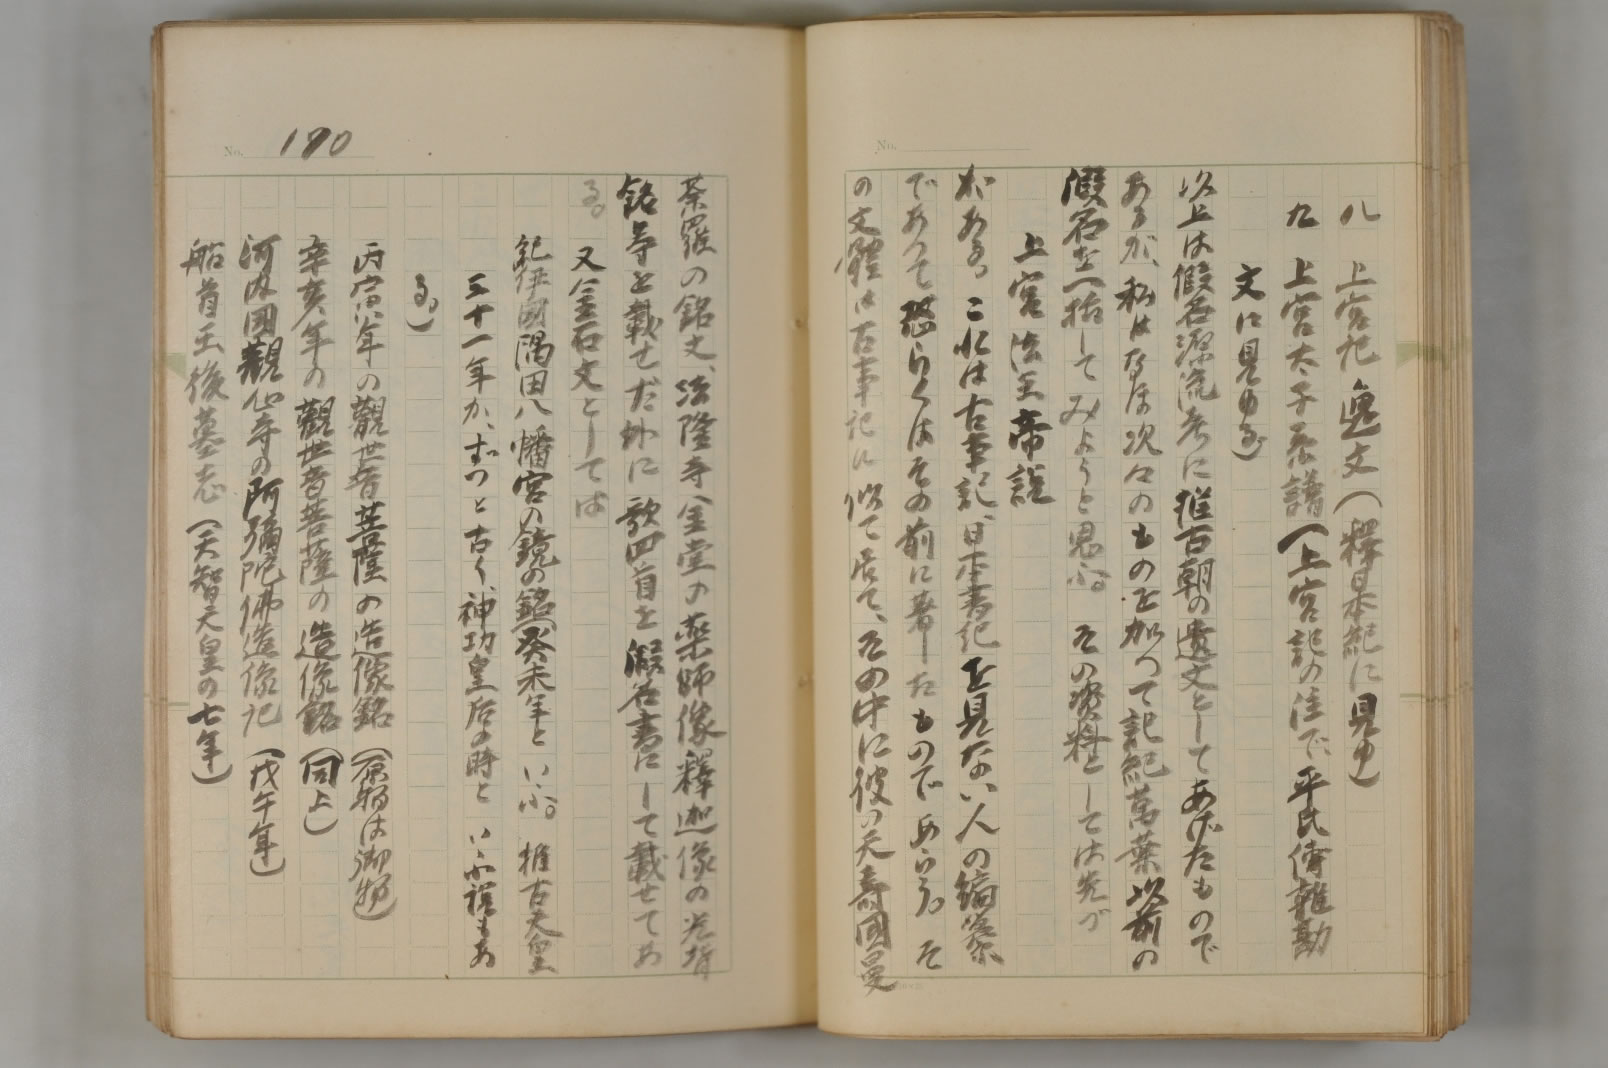 No.
八　上宮記逸文（釋日本紀に見ゆ）
九　上宮太子系譜（上宮記の注で、平氏傳雜勘
文に見ゆる）
以上は假名源流考に推古朝の遺文としてあげたもので
あるが、私はなほ次々のものを加つて記紀萬葉以前の
假名を一括してみようと思ふ。その資料としては先づ
上宮法王帝說
がある。これは古事記、日本書紀を見ない人の編纂
であつて恐らくはその前に著したものであらう。そ
の文體は古事記に似て居て、その中に彼の天壽國曼
No. 190
荼羅の銘文、法隆寺金堂の藥師像釋迦像の光背
銘等を載せだ外に歌四首を假名書にして載せてあ
る。又金石文としては
紀伊國隅田八幡宮の鏡の銘（癸未年といふ。推古天皇
三十一年か、ずつと古く、神功皇后の時といふ說もあ
る。）
丙寅年の觀世音菩薩の造像銘（原物は御物）
辛亥年の觀世音菩薩の造像銘（同上）
河内國觀心寺の阿彌陀佛造像記（戊午年）
船首王後墓志（天智天皇の七年）